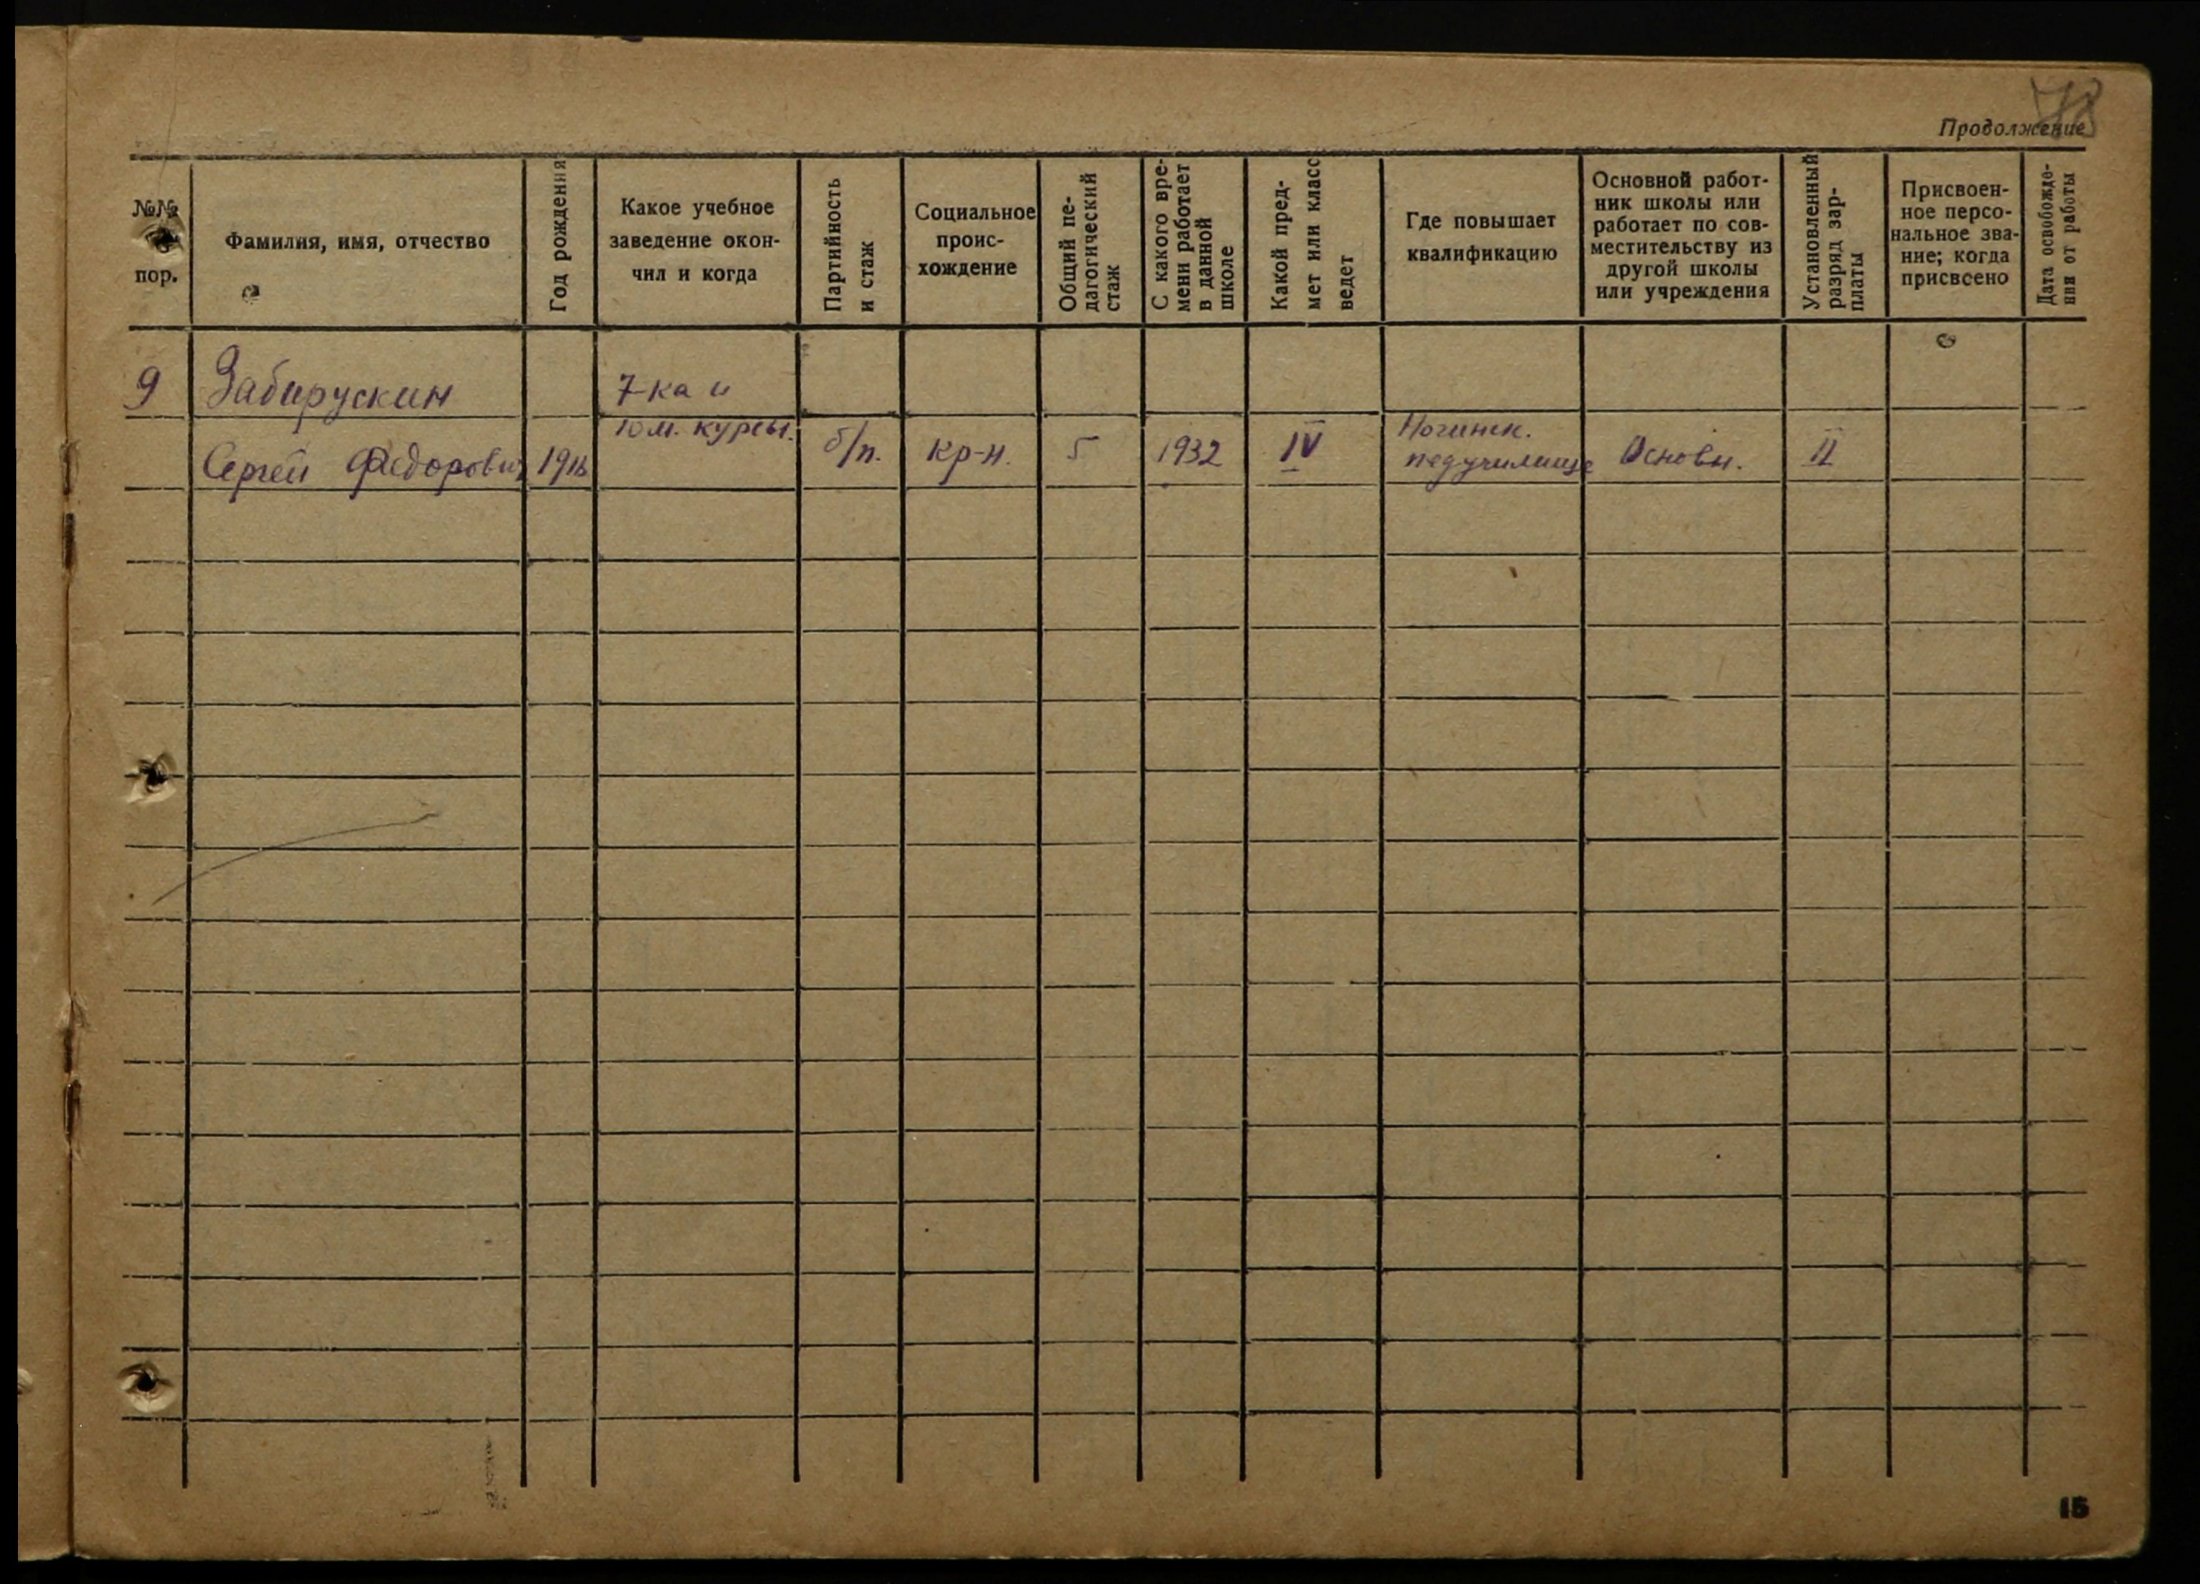 78
Продолжение
№№ пор.
Фамилия, имя, отчество
Год рождения
Какое учебное
заведение окон-
чил и когда
Партийность
и стаж
Социальное
проис-
хождение
Общий пе-
дагогический
стаж
С какого вре-
мени работает
в данной
школе
Какой пред-
мет или класс
ведет
Где повышает
квалификацию
Основной работ-
ник школы или
работает по сов-
местительству из
другой школы
или учреждения
Установленный
разряд зар-
платы
Присвоен-
ное персо-
нальное зва-
ние; когда
присвоено
Дата освобожде-
ния от работы
9 Забирускин 7-ка и
10 м. курсы. Ногинск.
Сергей Федорович б/п. кр-н. 5 1932 IV педучилище Основн. II
15